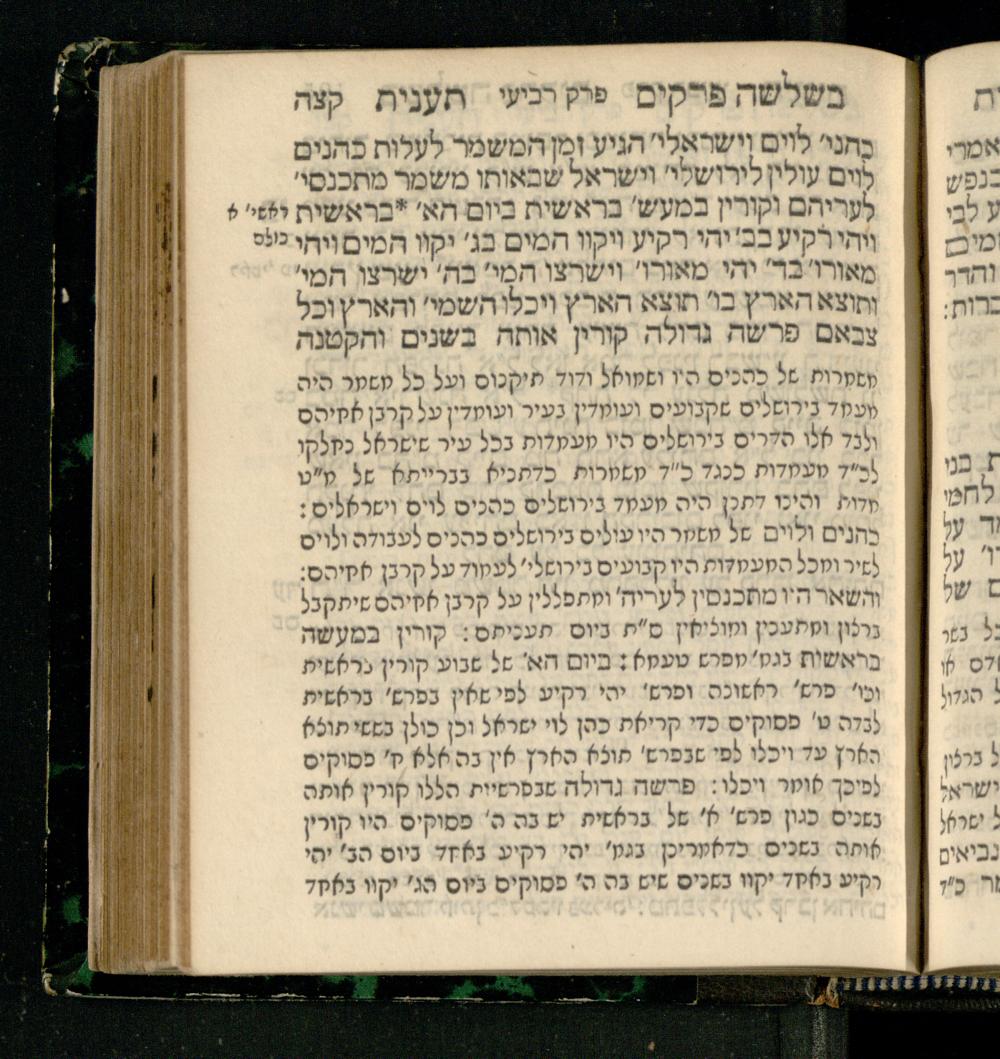 בשלשה פרקים פרק רביעי תענית קצה
כהני׳ לוים וישראלי׳ הגיע זמן המשמר לעלות כהנים
לוים עולין לירושלי׳ וישראל שבאותו משמר מתכנסי׳
לעריהם וקורין במעש׳ בראשית ביום הא׳ *בראשית
ויהי רקיע בב׳ יהי רקיע ויקוו המים בג׳ יקוו המים ויהי
מאורו׳ בד׳ יהי מאורו׳ וישרצו המי׳ בה׳ ישרצו המי׳
ותוצא הארץ בו׳ תוצא הארץ ויכלו השמי׳ והארץ וכל
צבאם פרשה גדולה קורין אותה בשנים והקטנה
ראשי׳ א
כולם
משמרות של כהנים היו ושמואל ודוד תיקנום ועל כל משמר היה
מעמד בירושלים שקבועים ועומדין בעיר ועומדין על קרבן אחיהם
ולבד אלו הדרים בירושלים היו מעמדות בכל עיר שישראל נחלקו
לכ״ד מעמדות כנגד כ״ד משמרות כדתניא בברייתא של מ״ט
מדות והיינו דתנן היה מעמד בירושלים כהנים לוים וישראלים :
כהנים ולוים של משמר היו עולים בירושלים כהנים לעבודה ולוים
לשיר ומכל המעמדות היו קבועים בירושלי׳ לעמוד על קרבן אחיהם:
והשאר היו מתכנסין לעריה׳ ומתפללין על קרבן אחיהם שיתקבל
ברצון ומתענין ומוציאין ס״ת ביום תעניתם : קורין במעשה
בראשות בגמ׳ מפרש טעמא : ביום הא׳ של שבוע קורין בראשית
וכו׳ פרש׳ ראשונה ופרש׳ יהי רקיע לפי שאין בפרש׳ בראשית
לבדה ט׳ פסוקים כדי קריאת כהן לוי ישראל וכן כולן בששי תוצא
הארץ עד ויכלו לפי שבפרש׳ תוצא הארץ אין בה אלא ח׳ פסוקים
לפיכך אומר ויכלו : פרשה גדולה שבפרשיית הללו קורין אותה
בשנים כגון פרש׳ א׳ של בראשית יש בה ה׳ פסוקים היו קורין
אותה בשנים כדאמרינן בגמ׳ יהי רקיע באחד ביום הב׳ יהי
רקיע באחד יקוו בשנים שיש בה ה׳ פסוקים ביום הג׳ יקוו באחד